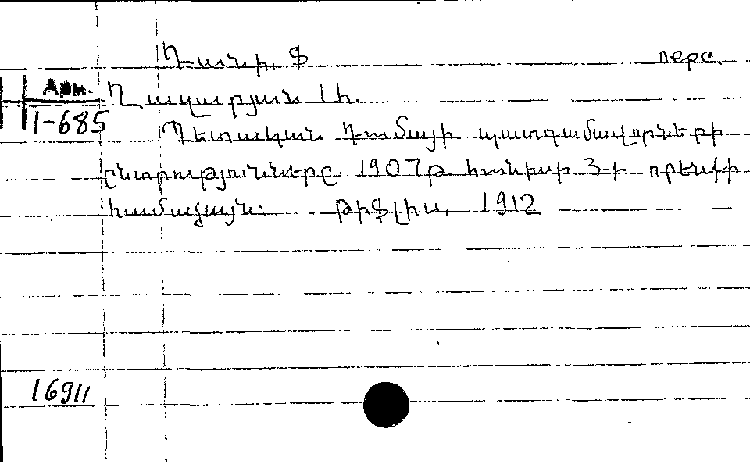 Դանի, Ֆ. перс.
Арм. Ղազարյան Ի.
1-685 Պետական Դումայի պատգամավորների
ընտրությունները 1907թ հունիսի 3-ի օրենքի
համաձայն: Թիֆլիս, 1912
16911